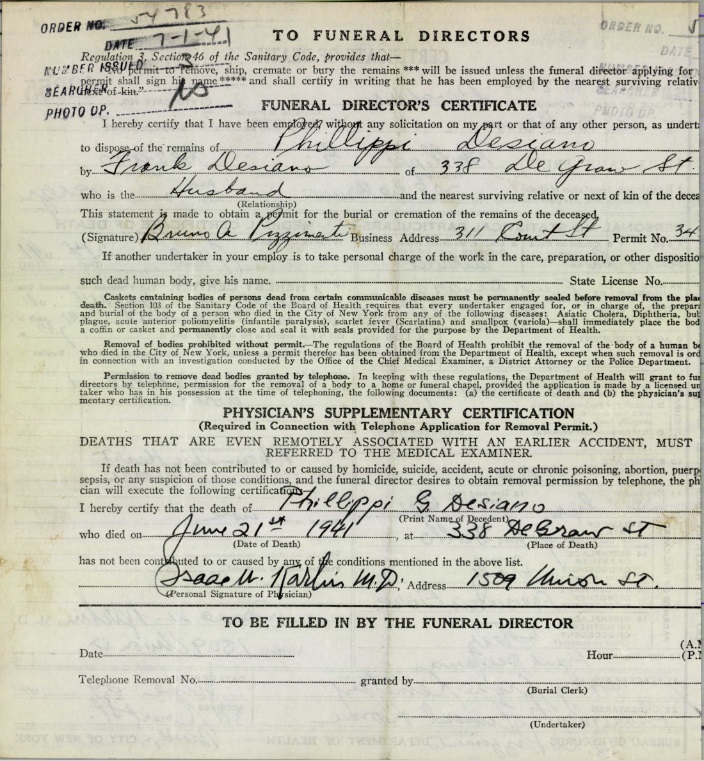 ORDER NO. 54783
DATE 7-1-41
NUMBER ISSUED 3
SEARCHER
PHOTO OP.
ORDER NO.
DATE
TO FUNERAL DIRECTORS
Regulation 3, Section 46 of the Sanitary Code, provides that—
"No permit to remove, ship, cremate or bury the remains *** will be issued unless the funeral director applying for
permit shall sign his name ***** and shall certify in writing that he has been employed by the nearest surviving relativ
next of kin."
FUNERAL DIRECTOR'S CERTIFICATE
I hereby certify that I have been employed, without any solicitation on my part or that of any other person, as undert
to dispose of the remains of Phillippi Desiano
by Frank Desiano of 338 De Graw St.
who is the Husband and the nearest surviving relative or next of kin of the decea
(Relationship)
This statement is made to obtain a permit for the burial or cremation of the remains of the deceased.
(Signature) Bruno A. Business Address 311 Court St Permit No. 34
If another undertaker in your employ is to take personal charge of the work in the care, preparation, or other dispositio
such dead human body, give his name. State License No.
Caskets containing bodies of persons dead from certain communicable diseases must be permanently sealed before removal from the plac
death. Section 103 of the Sanitary Code of the Board of Health requires that every undertaker engaged for, or in charge of, the prepar
and burial of the body of a person who died in the City of New York from any of the following diseases: Asiatic Cholera, Diphtheria, bub
plague, acute anterior poliomyelitis (infantile paralysis), scarlet fever (Scarlatina) and smallpox (variola)—shall immediately place the bod
a coffin or casket and permanently close and seal it with seals provided for the purpose by the Department of Health.
Removal of bodies prohibited without permit.—The regulations of the Board of Health prohibit the removal of the body of a human be
who died in the City of New York, unless a permit therefor has been obtained from the Department of Health, except when such removal is ord
in connection with an investigation conducted by the Office of the Chief Medical Examiner, a District Attorney or the Police Department.
Permission to remove dead bodies granted by telephone. In keeping with these regulations, the Department of Health will grant to fun
directors by telephone, permission for the removal of a body to a home or funeral chapel, provided the application is made by a licensed un
taker who has in his possession at the time of telephoning, the following documents: (a) the certificate of death and (b) the physician's sup
mentary certification.
PHYSICIAN'S SUPPLEMENTARY CERTIFICATION
(Required in Connection with Telephone Application for Removal Permit.)
DEATHS THAT ARE EVEN REMOTELY ASSOCIATED WITH AN EARLIER ACCIDENT, MUST
REFERRED TO THE MEDICAL EXAMINER.
If death has not been contributed to or caused by homicide, suicide, accident, acute or chronic poisoning, abortion, puerp
sepsis, or any suspicion of those conditions, and the funeral director desires to obtain removal permission by telephone, the ph
cian will execute the following certification:
I hereby certify that the death of Phillippi G. Desiano
(Print Name of Decedent)
who died on June 21st 1941, at 338 DeGraw St
(Date of Death) (Place of Death)
has not been contributed to or caused by any of the conditions mentioned in the above list.
Isaac W. Karlin M.D., Address 1509 Union St.
(Personal Signature of Physician)
TO BE FILLED IN BY THE FUNERAL DIRECTOR
Date Hour (A.M
(P.M
Telephone Removal No. granted by
(Burial Clerk)
(Undertaker)